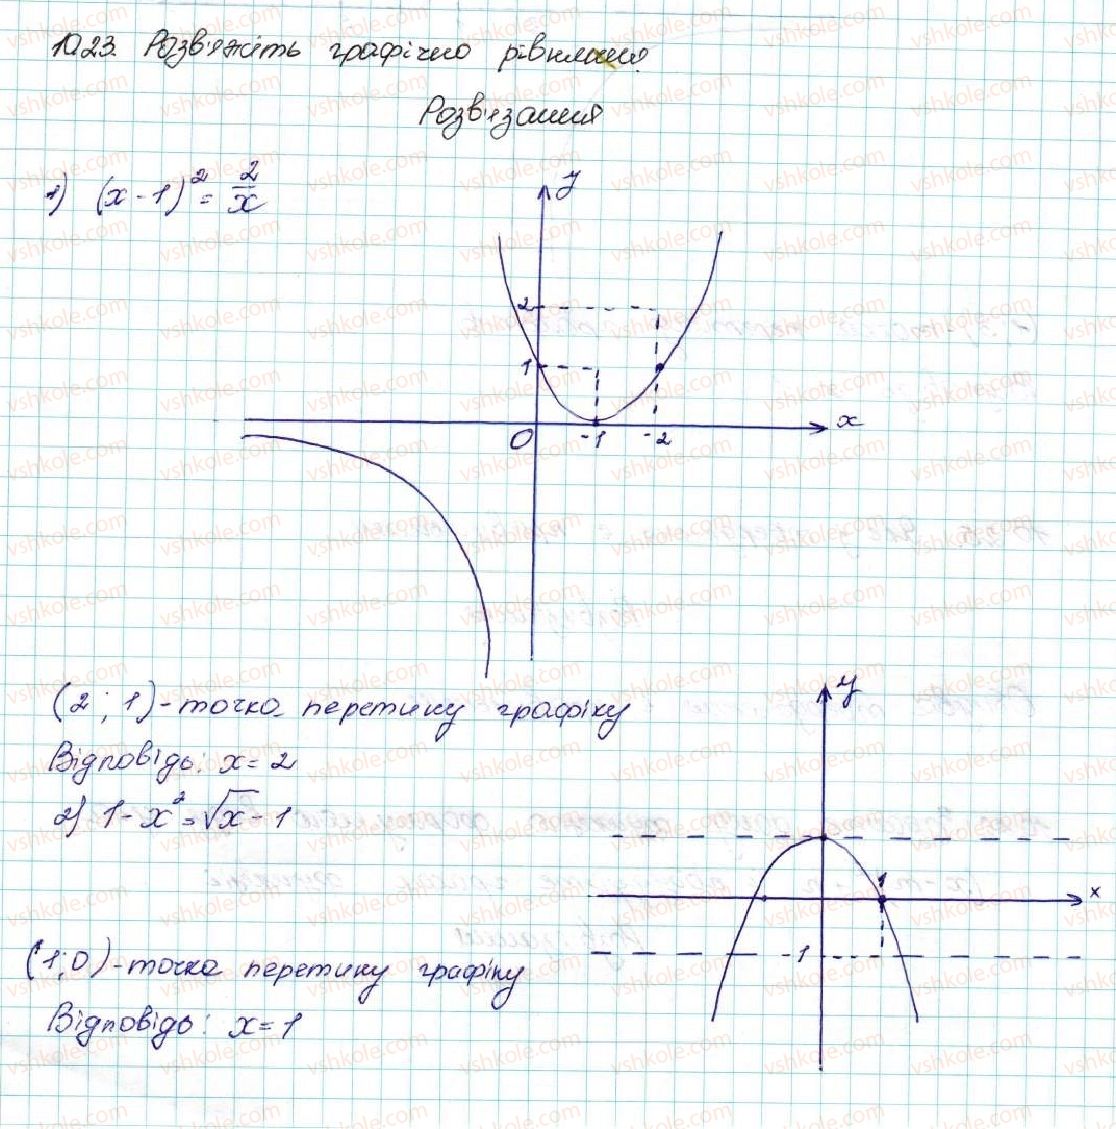 10.23. Розв'яжіть графічно рівняння.
Розв'язання
1) (x - 1)² = 2/x
y
2
1
x
O
-1
-2
(2 ; 1) - точка перетину графіку
Відповідь: x = 2
2) 1 - x² = √x - 1
y
1
x
-1
(1; 0) - точка перетину графіку
Відповідь: x = 1
vshkole.com